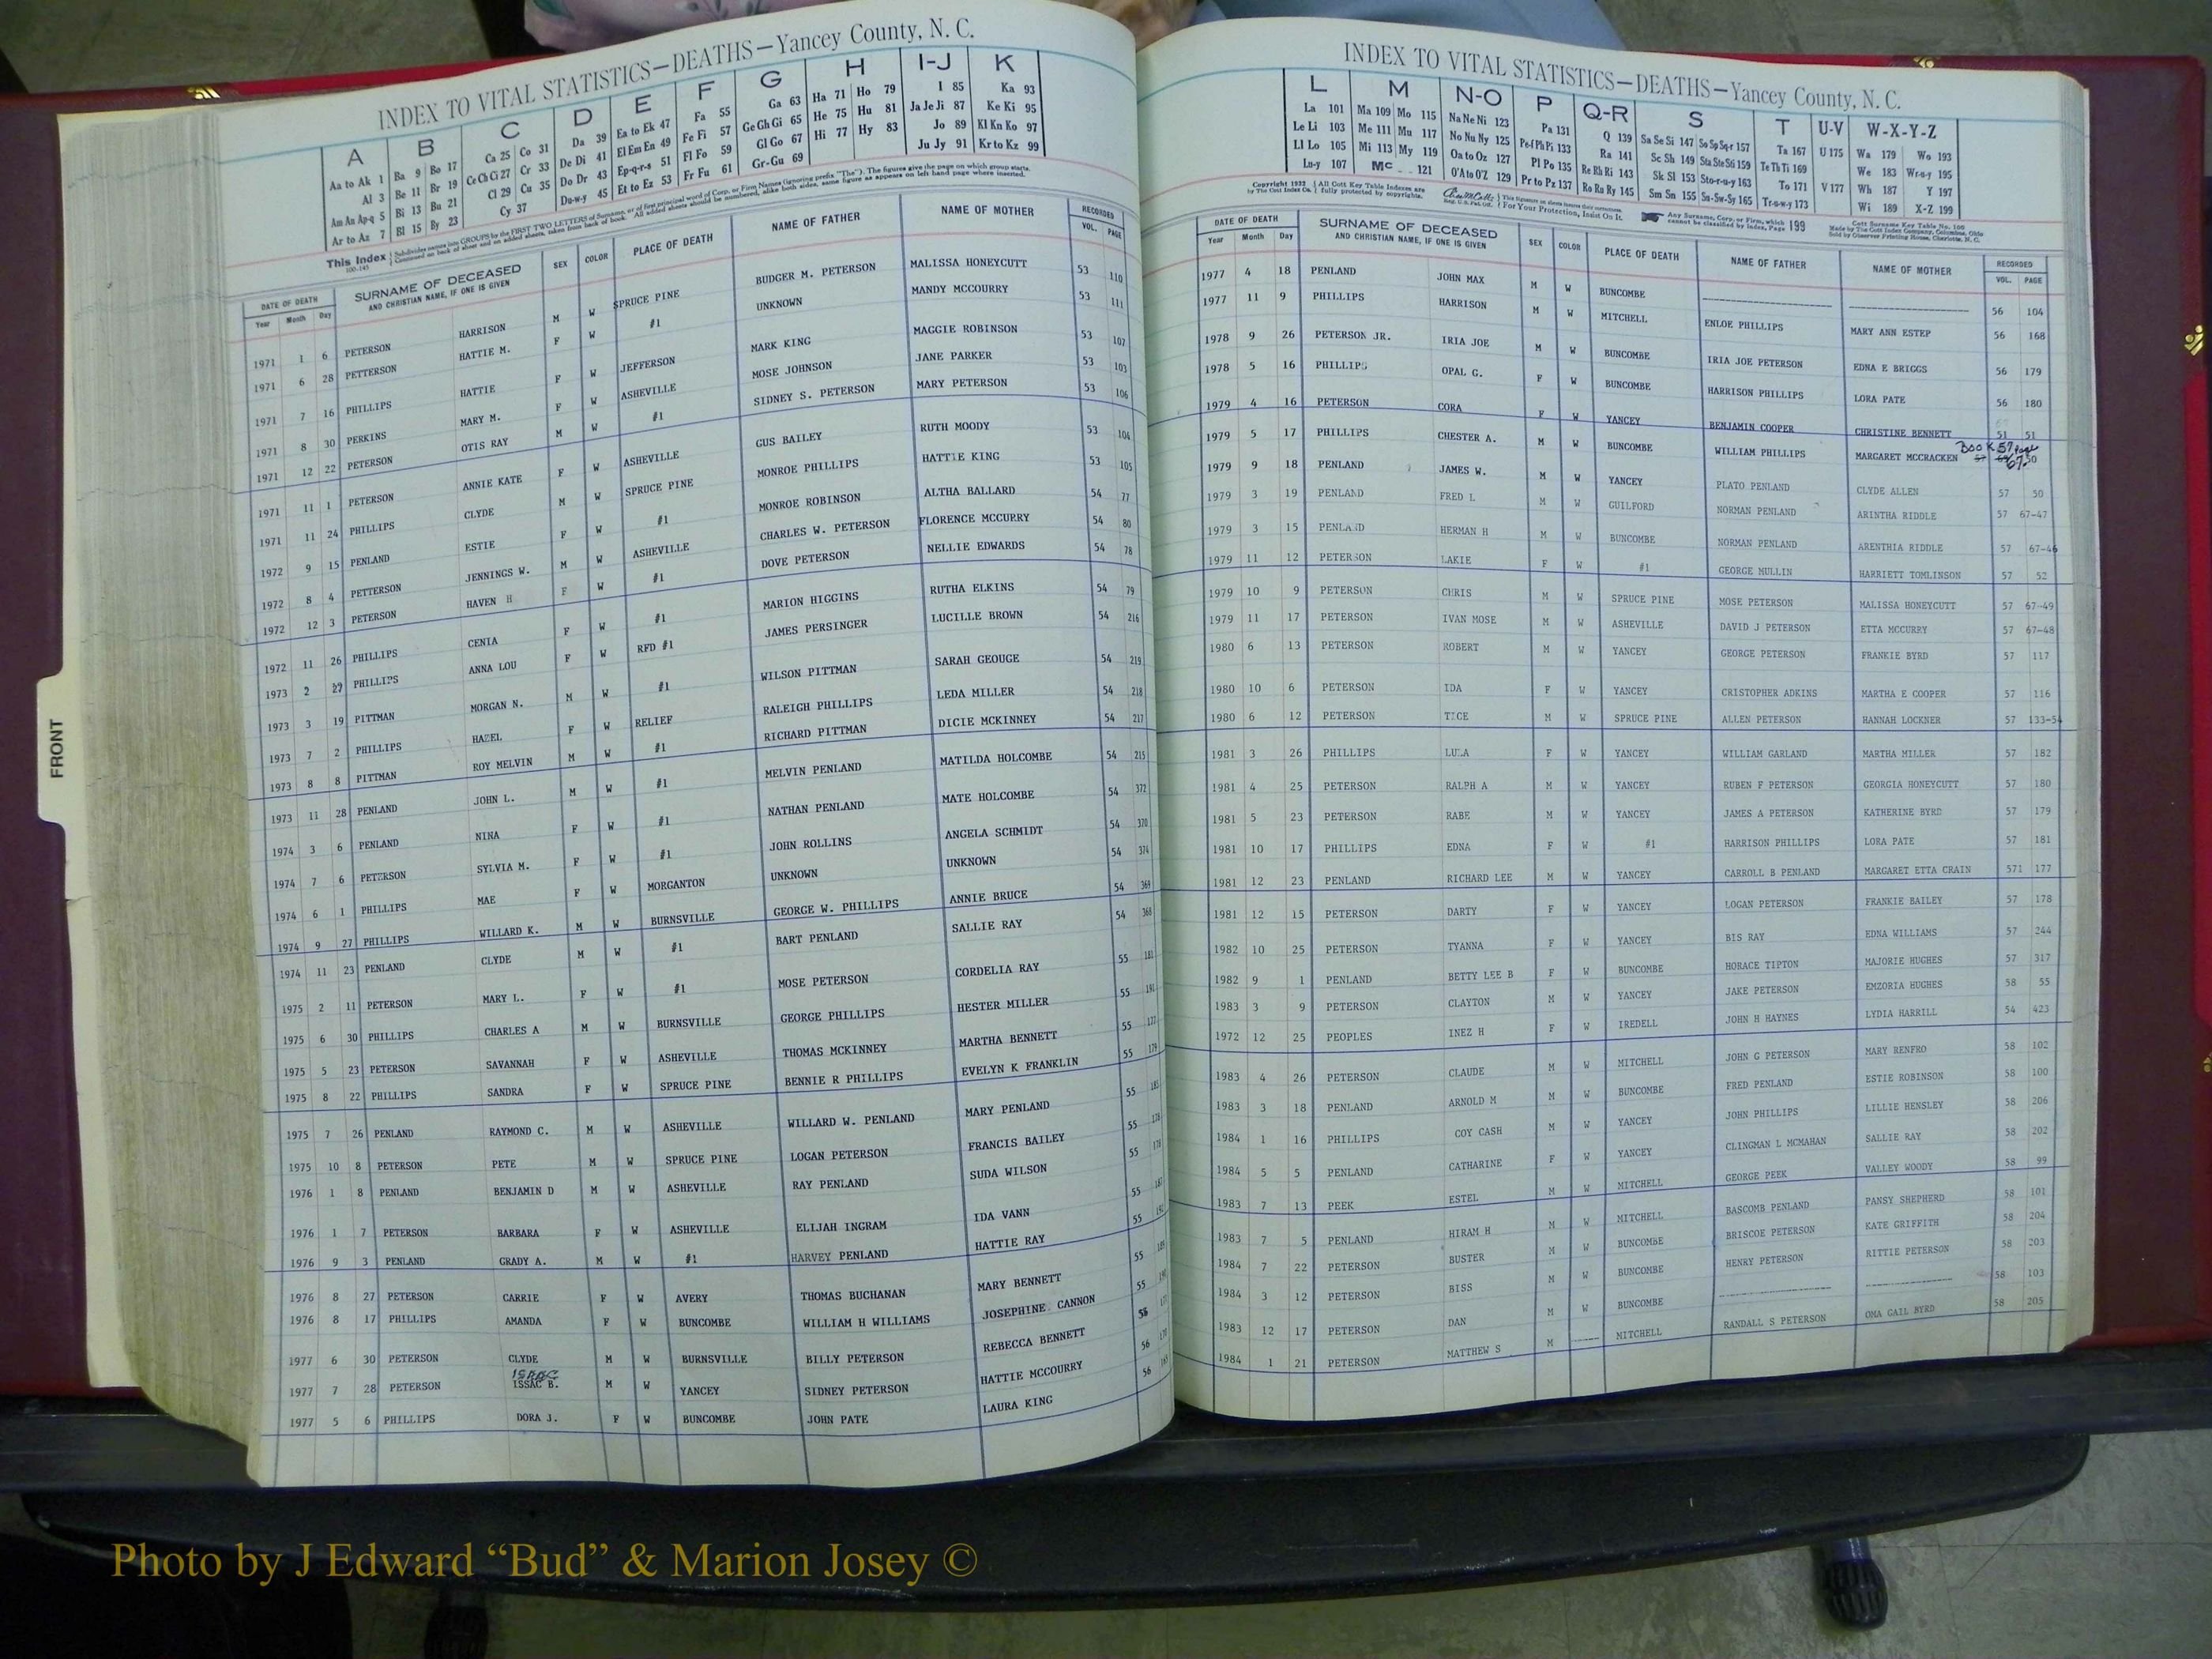 INDEX TO VITAL STATISTICS—DEATHS—Yancey County, N. C.
A B C D E F G H I-J K
Aa to Ak 1 Ba 9 Bo 17 Ca 25 Co 31 Da 39 Ea to Ek 47 Fa 55 Ga 63 Ha 71 Ho 79 I 85 Ka 93
Al 3 Be 11 Br 19 Ce Ch Ci 27 Cr 33 De Di 41 El Em En 49 Fe Fi 57 Ge Gh Gi 65 He 75 Hu 81 Ja Je Ji 87 Ke Ki 95
Am An Ap-q 5 Bi 13 Bu 21 Cl 29 Cu 35 Do Dr 43 Ep-q-r-s 51 Fl Fo 59 Gl Go 67 Hi 77 Hy 83 Jo 89 Kl Kn Ko 97
Ar to Az 7 Bl 15 By 23 Cy 37 Du-w-y 45 Et to Ez 53 Fr Fu 61 Gr-Gu 69 Ju Jy 91 Kr to Kz 99
This Index
DATE OF DEATH SURNAME OF DECEASED SEX COLOR PLACE OF DEATH NAME OF FATHER NAME OF MOTHER RECORDED
Year Month Day AND CHRISTIAN NAME, IF ONE IS GIVEN VOL. PAGE
1971 1 6 PETERSON HARRISON M W SPRUCE PINE BUDGER M. PETERSON MALISSA HONEYCUTT 53 110
1971 6 28 PETTERSON HATTIE M. F W #1 UNKNOWN MANDY MCCOURRY 53 111
1971 7 16 PHILLIPS HATTIE F W JEFFERSON MARK KING MAGGIE ROBINSON 53 107
1971 8 30 PERKINS MARY M. F W ASHEVILLE MOSE JOHNSON JANE PARKER 53 103
1971 12 22 PETERSON OTIS RAY M W #1 SIDNEY S. PETERSON MARY PETERSON 53 106
1971 11 1 PETERSON ANNIE KATE F W ASHEVILLE GUS BAILEY RUTH MOODY 53 104
1971 11 24 PHILLIPS CLYDE M W SPRUCE PINE MONROE PHILLIPS HATTIE KING 53 105
1972 9 15 PENLAND ESTIE F W #1 MONROE ROBINSON ALTHA BALLARD 54 77
1972 8 4 PETTERSON JENNINGS W. M W ASHEVILLE CHARLES W. PETERSON FLORENCE MCCURRY 54 80
1972 12 3 PETERSON HAVEN H F W #1 DOVE PETERSON NELLIE EDWARDS 54 78
1972 11 26 PHILLIPS CENIA F W #1 MARION HIGGINS RUTHA ELKINS 54 79
1973 2 27 PHILLIPS ANNA LOU F W RFD #1 JAMES PERSINGER LUCILLE BROWN 54 216
1973 3 19 PITTMAN MORGAN N. M W #1 WILSON PITTMAN SARAH GEOUGE 54 219
1973 7 2 PHILLIPS HAZEL F W RELIEF RALEIGH PHILLIPS LEDA MILLER 54 218
1973 8 8 PITTMAN ROY MELVIN M W #1 RICHARD PITTMAN DICIE MCKINNEY 54 217
1973 11 28 PENLAND JOHN L. M W #1 MELVIN PENLAND MATILDA HOLCOMBE 54 215
1974 3 6 PENLAND NINA F W #1 NATHAN PENLAND MATE HOLCOMBE 54 372
1974 7 6 PETERSON SYLVIA M. F W #1 JOHN ROLLINS ANGELA SCHMIDT 54 370
1974 6 1 PHILLIPS MAE F W MORGANTON UNKNOWN UNKNOWN 54 374
1974 9 27 PHILLIPS WILLARD K. M W BURNSVILLE GEORGE W. PHILLIPS ANNIE BRUCE 54 369
1974 11 23 PENLAND CLYDE M W #1 BART PENLAND SALLIE RAY 54 368
1975 2 11 PETERSON MARY L. F W #1 MOSE PETERSON CORDELIA RAY 55
1975 6 30 PHILLIPS CHARLES A M W BURNSVILLE GEORGE PHILLIPS HESTER MILLER 55
1975 5 23 PETERSON SAVANNAH F W ASHEVILLE THOMAS MCKINNEY MARTHA BENNETT 55
1975 8 22 PHILLIPS SANDRA F W SPRUCE PINE BENNIE R PHILLIPS EVELYN K FRANKLIN 55
1975 7 26 PENLAND RAYMOND C. M W ASHEVILLE WILLARD W. PENLAND MARY PENLAND 55
1975 10 8 PETERSON PETE M W SPRUCE PINE LOGAN PETERSON FRANCIS BAILEY 55
1976 1 8 PENLAND BENJAMIN D M W ASHEVILLE RAY PENLAND SUDA WILSON 55
1976 1 7 PETERSON BARBARA F W ASHEVILLE ELIJAH INGRAM IDA VANN 55
1976 9 3 PENLAND GRADY A. M W #1 HARVEY PENLAND HATTIE RAY 55
1976 8 27 PETERSON CARRIE F W AVERY THOMAS BUCHANAN MARY BENNETT 55
1976 8 17 PHILLIPS AMANDA F W BUNCOMBE WILLIAM H WILLIAMS JOSEPHINE CANNON 55
1977 6 30 PETERSON CLYDE M W BURNSVILLE BILLY PETERSON REBECCA BENNETT
1977 7 28 PETERSON ISSAC B. M W YANCEY SIDNEY PETERSON HATTIE MCCOURRY 56
1977 5 6 PHILLIPS DORA J. F W BUNCOMBE JOHN PATE LAURA KING 56
FRONT
INDEX TO VITAL STATISTICS—DEATHS—Yancey County, N. C.
L M N-O P Q-R S T U-V W-X-Y-Z
La 101 Ma 109 Mo 115 Na Ne Ni 123 Pa 131 Q 139 Sa Se Si 147 So Sp Sq-r 157 Ta 167 U 175 Wa 179 Wo 193
Le Li 103 Me 111 Mu 117 No Nu Ny 125 Pe-f Ph Pi 133 Ra 141 Sc Sh 149 Sta Ste Sti 159 Te Th Ti 169 We 183 Wr-u-y 195
Ll Lo 105 Mi 113 My 119 Oa to Oz 127 Pl Po 135 Re Rh Ri 143 Sk Sl 153 Sto-r-u-y 163 To 171 V 177 Wh 187 Y 197
Lu-y 107 Mc 121 O'A to O'Z 129 Pr to Pz 137 Ro Ru Ry 145 Sm Sn 155 Su-Sw-Sy 165 Tr-u-w-y 173 Wi 189 X-Z 199
DATE OF DEATH SURNAME OF DECEASED SEX COLOR PLACE OF DEATH NAME OF FATHER NAME OF MOTHER RECORDED
Year Month Day AND CHRISTIAN NAME, IF ONE IS GIVEN VOL. PAGE
1977 4 18 PENLAND JOHN MAX M W BUNCOMBE 56 104
1977 11 9 PHILLIPS HARRISON M W MITCHELL ENLOE PHILLIPS MARY ANN ESTEP 56 168
1978 9 26 PETERSON JR. IRIA JOE M W BUNCOMBE IRIA JOE PETERSON EDNA E BRIGGS 56 179
1978 5 16 PHILLIPS OPAL G. F W BUNCOMBE HARRISON PHILLIPS LORA PATE 56 180
1979 4 16 PETERSON CORA F W YANCEY BENJAMIN COOPER CHRISTINE BENNETT 51 51
1979 5 17 PHILLIPS CHESTER A. M W BUNCOMBE WILLIAM PHILLIPS MARGARET MCCRACKEN Book 57 Page 67-50
1979 9 18 PENLAND JAMES W. M W YANCEY PLATO PENLAND CLYDE ALLEN 57 50
1979 3 19 PENLAND FRED L M W GUILFORD NORMAN PENLAND ARINTHA RIDDLE 57 67-47
1979 3 15 PENLAND HERMAN H M W BUNCOMBE NORMAN PENLAND ARENTHIA RIDDLE 57 67-46
1979 11 12 PETERSON LAKIE F W #1 GEORGE MULLIN HARRIETT TOMLINSON 57 52
1979 10 9 PETERSON CHRIS M W SPRUCE PINE MOSE PETERSON MALISSA HONEYCUTT 57 67-49
1979 11 17 PETERSON IVAN MOSE M W ASHEVILLE DAVID J PETERSON ETTA MCCURRY 57 67-48
1980 6 13 PETERSON ROBERT M W YANCEY GEORGE PETERSON FRANKIE BYRD 57 117
1980 10 6 PETERSON IDA F W YANCEY CRISTOPHER ADKINS MARTHA E COOPER 57 116
1980 6 12 PETERSON TICE M W SPRUCE PINE ALLEN PETERSON HANNAH LOCKNER 57 133-54
1981 3 26 PHILLIPS LULA F W YANCEY WILLIAM GARLAND MARTHA MILLER 57 182
1981 4 25 PETERSON RALPH A M W YANCEY RUBEN F PETERSON GEORGIA HONEYCUTT 57 180
1981 5 23 PETERSON RABE M W YANCEY JAMES A PETERSON KATHERINE BYRD 57 179
1981 10 17 PHILLIPS EDNA F W #1 HARRISON PHILLIPS LORA PATE 57 181
1981 12 23 PENLAND RICHARD LEE M W YANCEY CARROLL B PENLAND MARGARET ETTA CRAIN 571 177
1981 12 15 PETERSON DARTY F W YANCEY LOGAN PETERSON FRANKIE BAILEY 57 178
1982 10 25 PETERSON TYANNA F W YANCEY BIS RAY EDNA WILLIAMS 57 244
1982 9 1 PENLAND BETTY LEE B F W BUNCOMBE HORACE TIPTON MAJORIE HUGHES 57 317
1983 3 9 PETERSON CLAYTON M W YANCEY JAKE PETERSON EMZORIA HUGHES 58 55
1972 12 25 PEOPLES INEZ H F W IREDELL JOHN H HAYNES LYDIA HARRILL 54 423
1983 4 26 PETERSON CLAUDE M W MITCHELL JOHN G PETERSON MARY RENFRO 58 102
1983 3 18 PENLAND ARNOLD M M W BUNCOMBE FRED PENLAND ESTIE ROBINSON 58 100
1984 1 16 PHILLIPS COY CASH M W YANCEY JOHN PHILLIPS LILLIE HENSLEY 58 206
1984 5 5 PENLAND CATHARINE F W YANCEY CLINGMAN L MCMAHAN SALLIE RAY 58 202
1983 7 13 PEEK ESTEL M W MITCHELL GEORGE PEEK VALLEY WOODY 58 99
1983 7 5 PENLAND HIRAM H M W MITCHELL BASCOMB PENLAND PANSY SHEPHERD 58 101
1984 7 22 PETERSON BUSTER M W BUNCOMBE BRISCOE PETERSON KATE GRIFFITH 58 204
1984 3 12 PETERSON BISS M W BUNCOMBE HENRY PETERSON RITTIE PETERSON 58 203
1983 12 17 PETERSON DAN M W BUNCOMBE 58 103
1984 1 21 PETERSON MATTHEW S M MITCHELL RANDALL S PETERSON OMA GAIL BYRD 58 205
Photo by J Edward “Bud” & Marion Josey ©